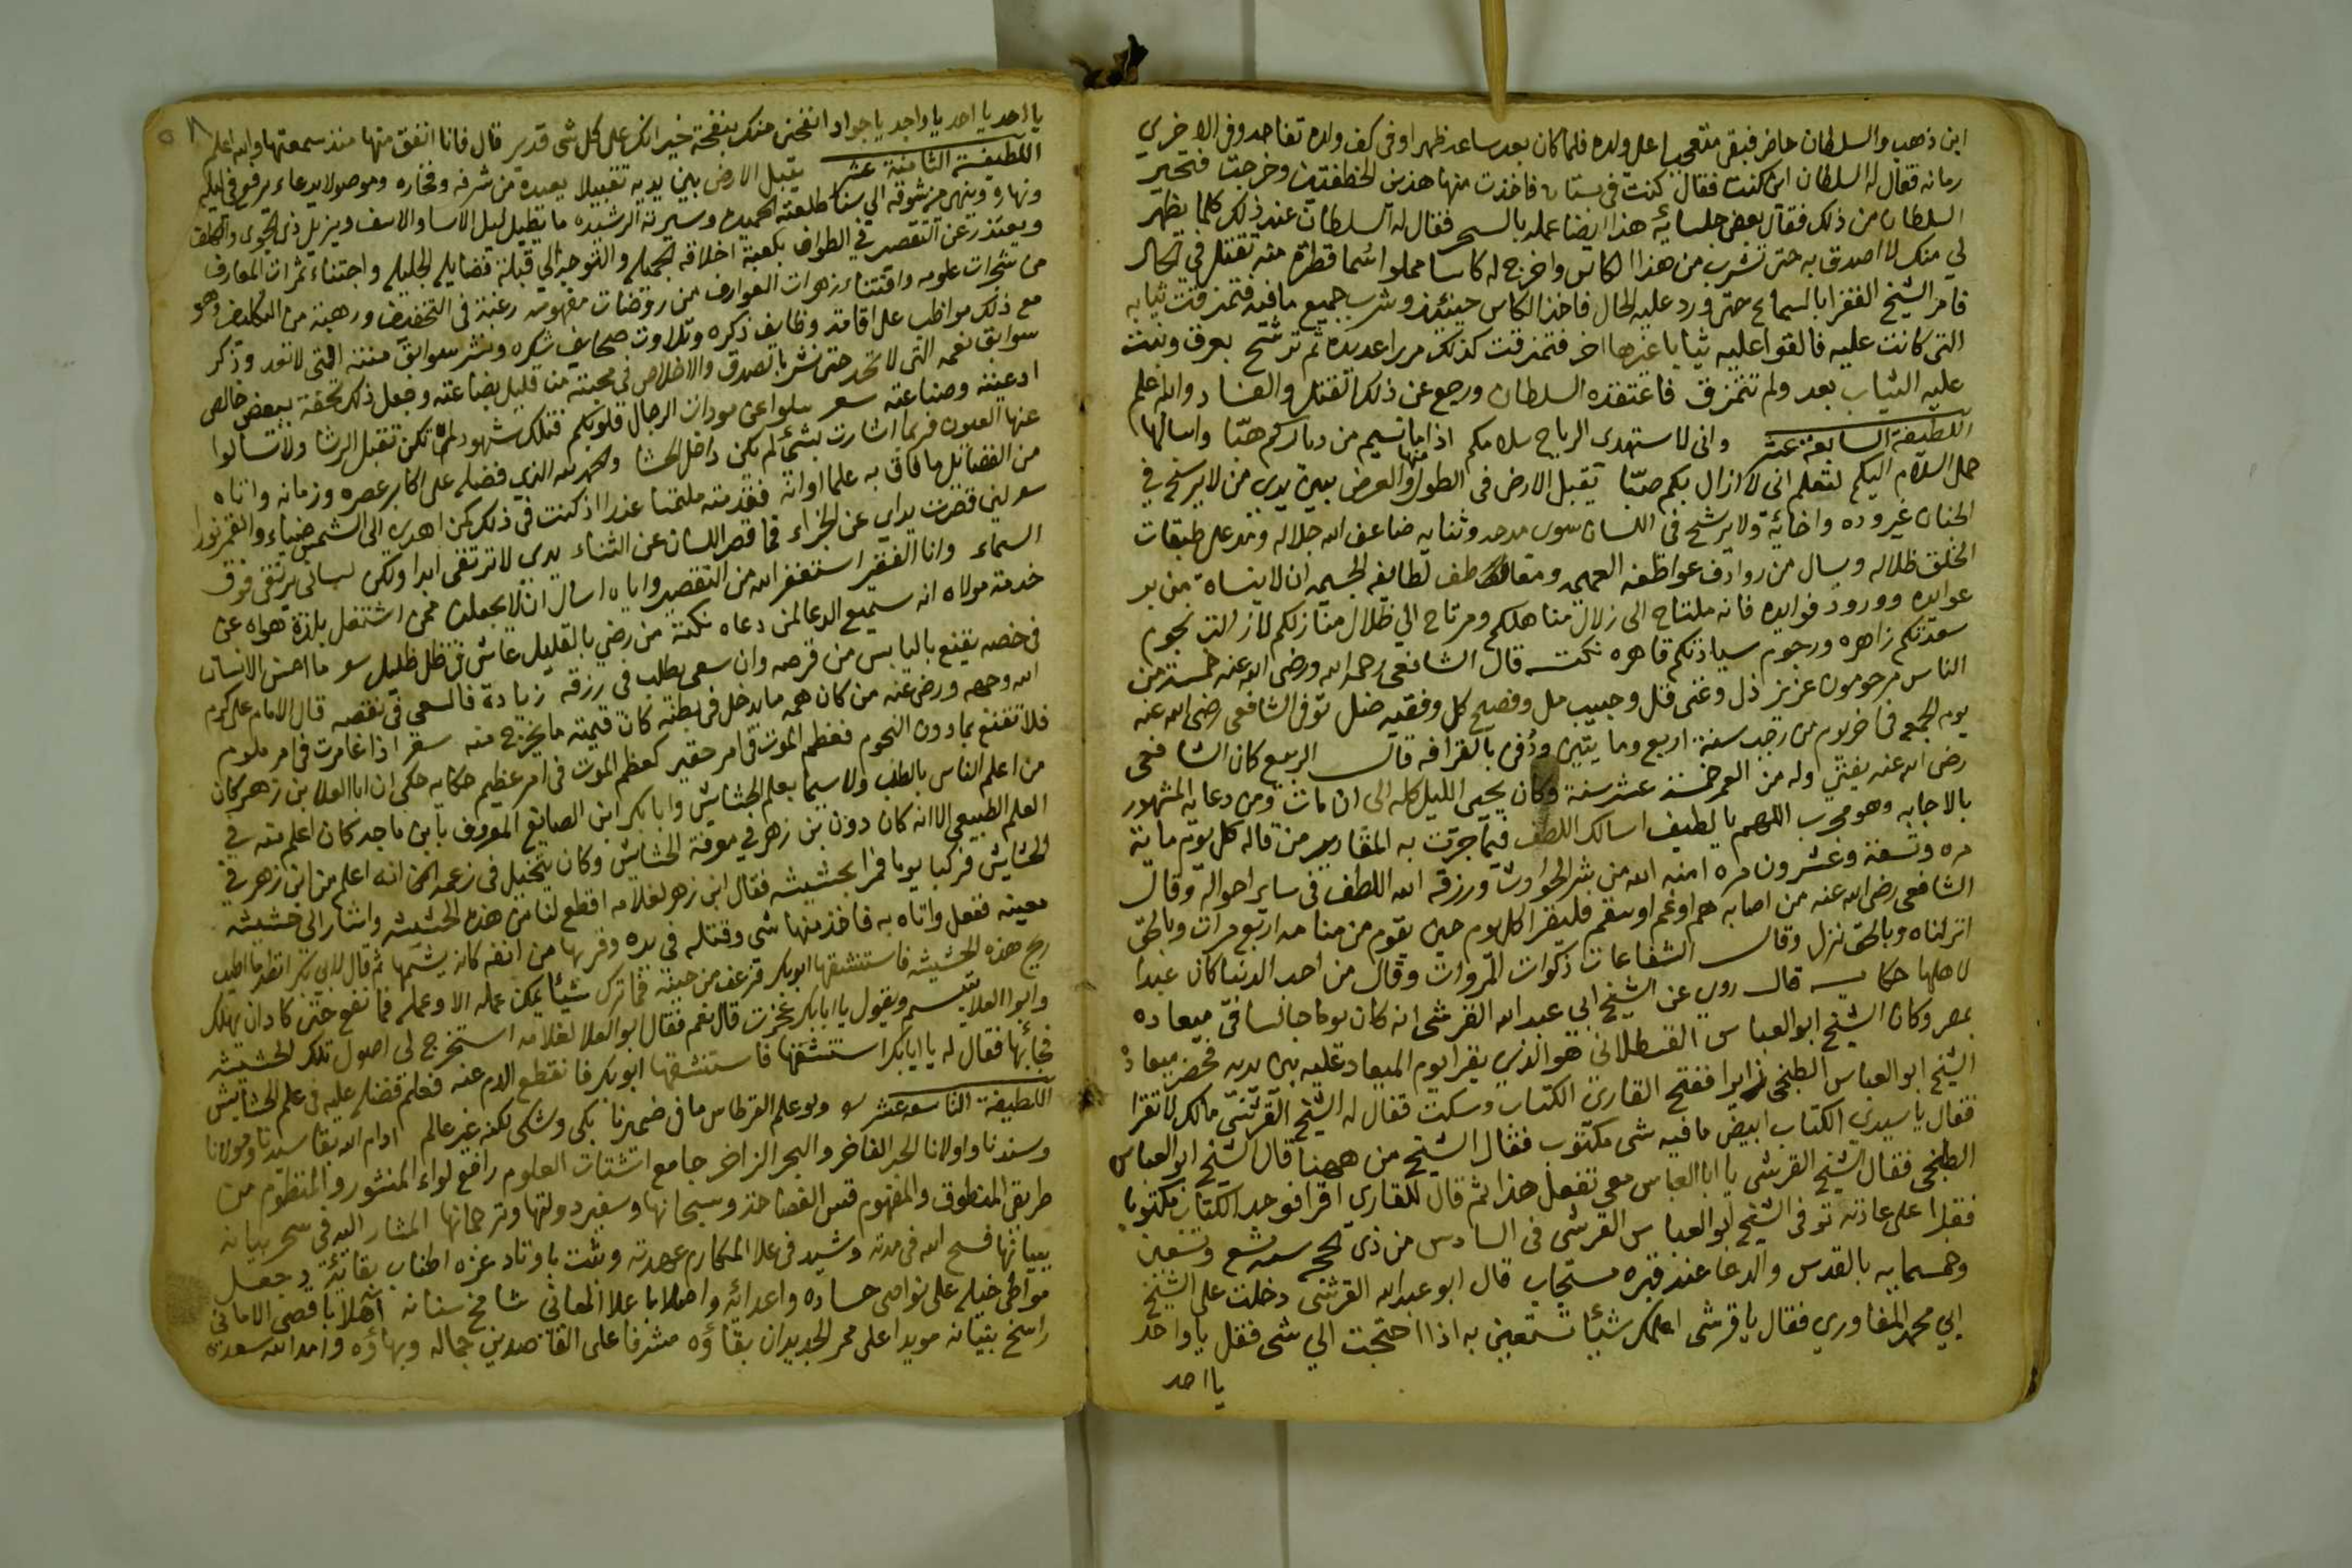 ابن ذهب والسلطان حاضر فبقى متعجبا على ولده فلما كان بعد ساعة ظهر اوفى كف ولده تفاحه وفى الاخرى
رمانه فقال له السلطان اين كنت فقال كنت فى بستان فاخذت منها هذين وخرجت فتحير
السلطان من ذلك فقال بعض جلسائه هذا ايضا عمله بالسحر فقال له السلطان عند ذلك كلما يظهر
لي منك لا اصدق به حتى تشرب من هذا الكاس واخرج له كاسا مملوا سما قطرة منه تقتل في الحال
فامر الشيخ الفقرا بالسماع حتى ورد عليه الحال فاخذ الكاس حينئذ وشرب جميع ما فيه فتمزقت ثيابه
التى كانت عليه فالقوا عليه ثيابا غيرها اخر فتمزقت كذلك مرارا عديده ثم ترشح بعرق وثبتت
عليه الثياب بعد ولم تتمزق فاعتقده السلطان ورجع عن ذلك القتل والفساد والله اعلم
اللطيفة السابعة عشر وانى لاستهدى الرياح سلامكم اذا ما نسيم من دياركم هبّا واسالها
حمل السلام اليكم لتعلم انى لا ازال بكم صبّا يقبل الارض فى الطول والعرض بين يدى من لا يرسخ في
الجنان غير وده واخائه ولا يرشح فى اللسان سوى مدحه وثنايه ضاعف الله جلاله ومد على طبقات
الخلق ظلاله ويسال من روادف عواطفه العميمه لطايفه الجسيمه ان لا ينساه من بر
عوايده وورود فوايده فانه ملتاح الى زلال مناهلكم ومرتاح الي ظلال منازلكم لا زالت نجوم
سعدكم زاهره ورجوم سيادتكم قاهره نكتة قال الشافعى رحمه الله ورضى الله عنه خمسة من
الناس مرحومون عزيز ذل وغنى قل وحبيب مل وفصيح كل وفقيه ضل توفى الشافعى رضى الله عنه
يوم الجمعه فى اخر يوم من رجب سنة اربع ومايتين ودُفن بالقرافه قال الربيع كان الشافعى
رضى الله عنه يفتى وله من العمر خمسة عشر سنة وكان يحيى الليل كله الى ان مات ومن دعايه المشهور
بالاجابه وهو مجرب اللهم يا لطيف اسالك اللطف فيما جرت به المقادير من قاله كل يوم ماية
مره وتسعة وعشرون مره امنه الله من شر الحوادث ورزقه الله اللطف فى ساير احواله وقال
الشافعى رضى الله عنه من اصابه هم او غم او سقم فليقرا كل يوم حين يقوم من منامه اربع مرات وبالحق
انزلناه وبالحق نزل وقال الشفاعات زكوات المروات وقال من احب الدنيا كان عبدا
لاهلها حكاية قال روى عن الشيخ ابى عبد الله القرشى انه كان يوما جالسا فى ميعاده
بمصر وكان الشيخ ابو العباس القسطلانى هو الذى يقرا يوم الميعاد عليه بين يديه فحضر ميعاده
الشيخ ابو العباس الطنجى زايرا ففتح القارئ الكتاب وسكت فقال له الشيخ القرشى مالك لا تقرا
فقال يا سيدى الكتاب ابيض ما فيه شى مكتوب فقال الشيخ من ههنا قال الشيخ ابو العباس
الطنجى فقال الشيخ القرشى يا ابا العباس معى تفعل هذا ثم قال للقارى اقرا فوجد الكتاب مكتوبا
فقرا على عادته توفى الشيخ ابو العباس القرشى فى السادس من ذى الحجه سنه تسع وتسعين
وخمسمايه بالقدس والدعا عند قبره مستجاب قال ابو عبد الله القرشى دخلت على الشيخ
ابي محمد المغاوري فقال يا قرشى اعلمك شيئا تستعين به اذا احتجت الي شى فقل يا واحد
يا احد
يا احد يا احد يا واجد يا جواد انفحنى منك بنفحة خير انك على كل شى قدير قال فانا انفق منها منذ سمعتها والله اعلم
اللطيفة الثامنة عشر يقبل الارض بين يديه تقبيلا يعيده من شرفه وفخاره وموصولا بدعاء يرفع فى ليله
ونهاره وينهى من شوقه الى سنا طلعته الحميده وسيرته الرشيده ما يطيل ليل الاسا والاسف ويزيل ذى الجوى والكلف
ويعتذر عن التقصير في الطواف بكعبة اخلاقه الجميله والتوجه الي قبلة فضايله الجليله واجتناء ثمرات المعارف
من شجرات علومه واقتناء زهرات العوارف من روضات مفهومه رغبة فى التخفيف ورهبة من التكليف وهو
مع ذلك مواظب على اقامة وظايف ذكره وتلاوت صحايف شكره ونشر سوابق مننه التى لا تعد وذكر
سوابق نعمه التى لا تحد حتى نشر بالصدق والاخلاص في محبته من قليل بضاعته وجعل ذلك تحفة ببعض خالص
ادعيته وصناعته سعر سلوا عن مودات الرجال قلوبكم فتلك شهود لم تكن تقبل الرشا ولا تسالوا
عنها العيون فربما اشارت بشئ لم يكن داخل الحشا والحمد لله الذى فضله على اكابر عصره وزمانه واتاه
من الفضائل ما فاق به علما اوانه فقدمته ملتمسا عذرا اذ كنت فى ذلك كمن اهدى الى الشمس ضياء والقمر نورا
سعر لين قصرت يداي عن الجزاء فما قصر اللسان عن الثناء يدى لا ترتقى ابدا ولكن لسانى يرتقى فوق
السماء وانا الفقير استغفر الله من التقصير واياه اسال ان لا يجعلنى ممن اشتغل بلذة هواه عن
خدمة مولاه انه سميع الدعا لمن دعاه نكتة من رضي بالقليل عاش فى ظل ظليل سعر ما احسن الانسان
فى خصه يقنع باليابس من قرصه وان سعى يطلب فى رزقه زيادة فالسعي فى نقصه قال الامام على كرم
الله وجهه ورضى عنه من كان همه ما يدخل فى بطنه كان قيمته ما يخرج منه سعر اذا غامرت فى امر مروم
فلا تقنع بما دون النجوم فطعم الموت فى امر حقير كطعم الموت فى امر عظيم حكايه حكى ان ابا العلا بن زهر كان
من اعلم الناس بالطب ولا سيما بعلم الحشايش وابا بكر ابن الصايغ المعروف بابن ماجه كان اعلم منه في
العلم الطبيعي الا انه كان دون بن زهر في معرفة الحشايش وكان يتخيل فى زعمه انه اعلم من ابن زهر في
الحشايش فركبا يوما فمرا بحشيشه فقال ابن زهر لغلامه اقطع لنا من هذه الحشيشه واشار الى حشيشه
معينه ففعل واتاه به فاخذ منها شى وفتله فى يده وقربها من انفه كانه يشمها ثم قال لابى بكر انظر ما اطيب
ريح هذه الحشيشه فاستنشقها ابو بكر فرعف من حينه فما ترك شيئا يمكن عمله الا وعمله فما نفع حتى كاد ان يهلك
وابو العلا يتبسم ويقول يا ابا بكر عجزت قال نعم فقال ابو العلا لغلامه استخرج لى اصول تلك الحشيشه
فجابها فقال له يا ابا بكر استنشقها فاستنشقها ابو بكر فانقطع الدم عنه فعلم فضله عليه فى علم الحشايش
اللطيفة التاسعه عشر سعر ولو علم القرطاس ما فى ضميرنا بكى وشكى لكنه غير عالم ادام الله بقا سيدنا ومولانا
وسندنا واولانا الحبر الفاخر والبحر الزاخر جامع اشتات العلوم رافع لواء المنثور والمنظوم من
طريقى المنطوق والمفهوم قس الفصاحة وسبحانها وسفير دولتها وترجمانها المشار اليه فى سحر بيانه
ببيانها فسح الله فى مدته وشيد فى علا المكارم عهدته وثبت باوتاد عزه اطناب بقائه وجعل
مواطئ خيله على نواصى حساده واعدائه واصلا باعلا المعاني شامخ سنانه اهلا باقصى الاماني
راسخ بنيانه مويدا على ممر الجديدان بقاؤه مشرفا على القاصدين جماله وبهاؤه وامد الله سعده